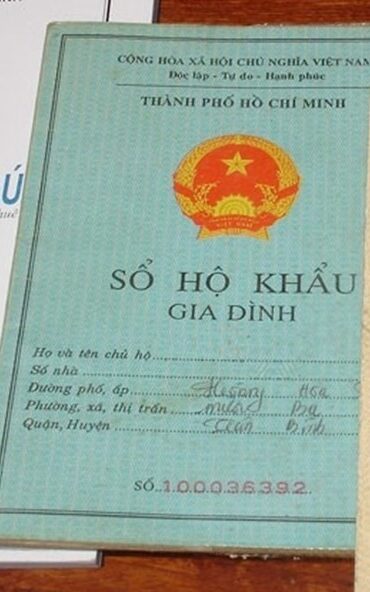 CỘNG HÒA XÃ HỘI CHỦ NGHĨA VIỆT NAM
Độc lập - Tự do - Hạnh phúc
THÀNH PHỐ HỒ CHÍ MINH
VIỆT NAM
SỔ HỘ KHẨU
GIA ĐÌNH
Ú
huê
Họ và tên chủ hộ
Số nhà
Đường phố, ấp Hoàng Hoa
Phường, xã, thị trấn mười Ba
Quận, Huyện Tân Bình
SỐ 100036392